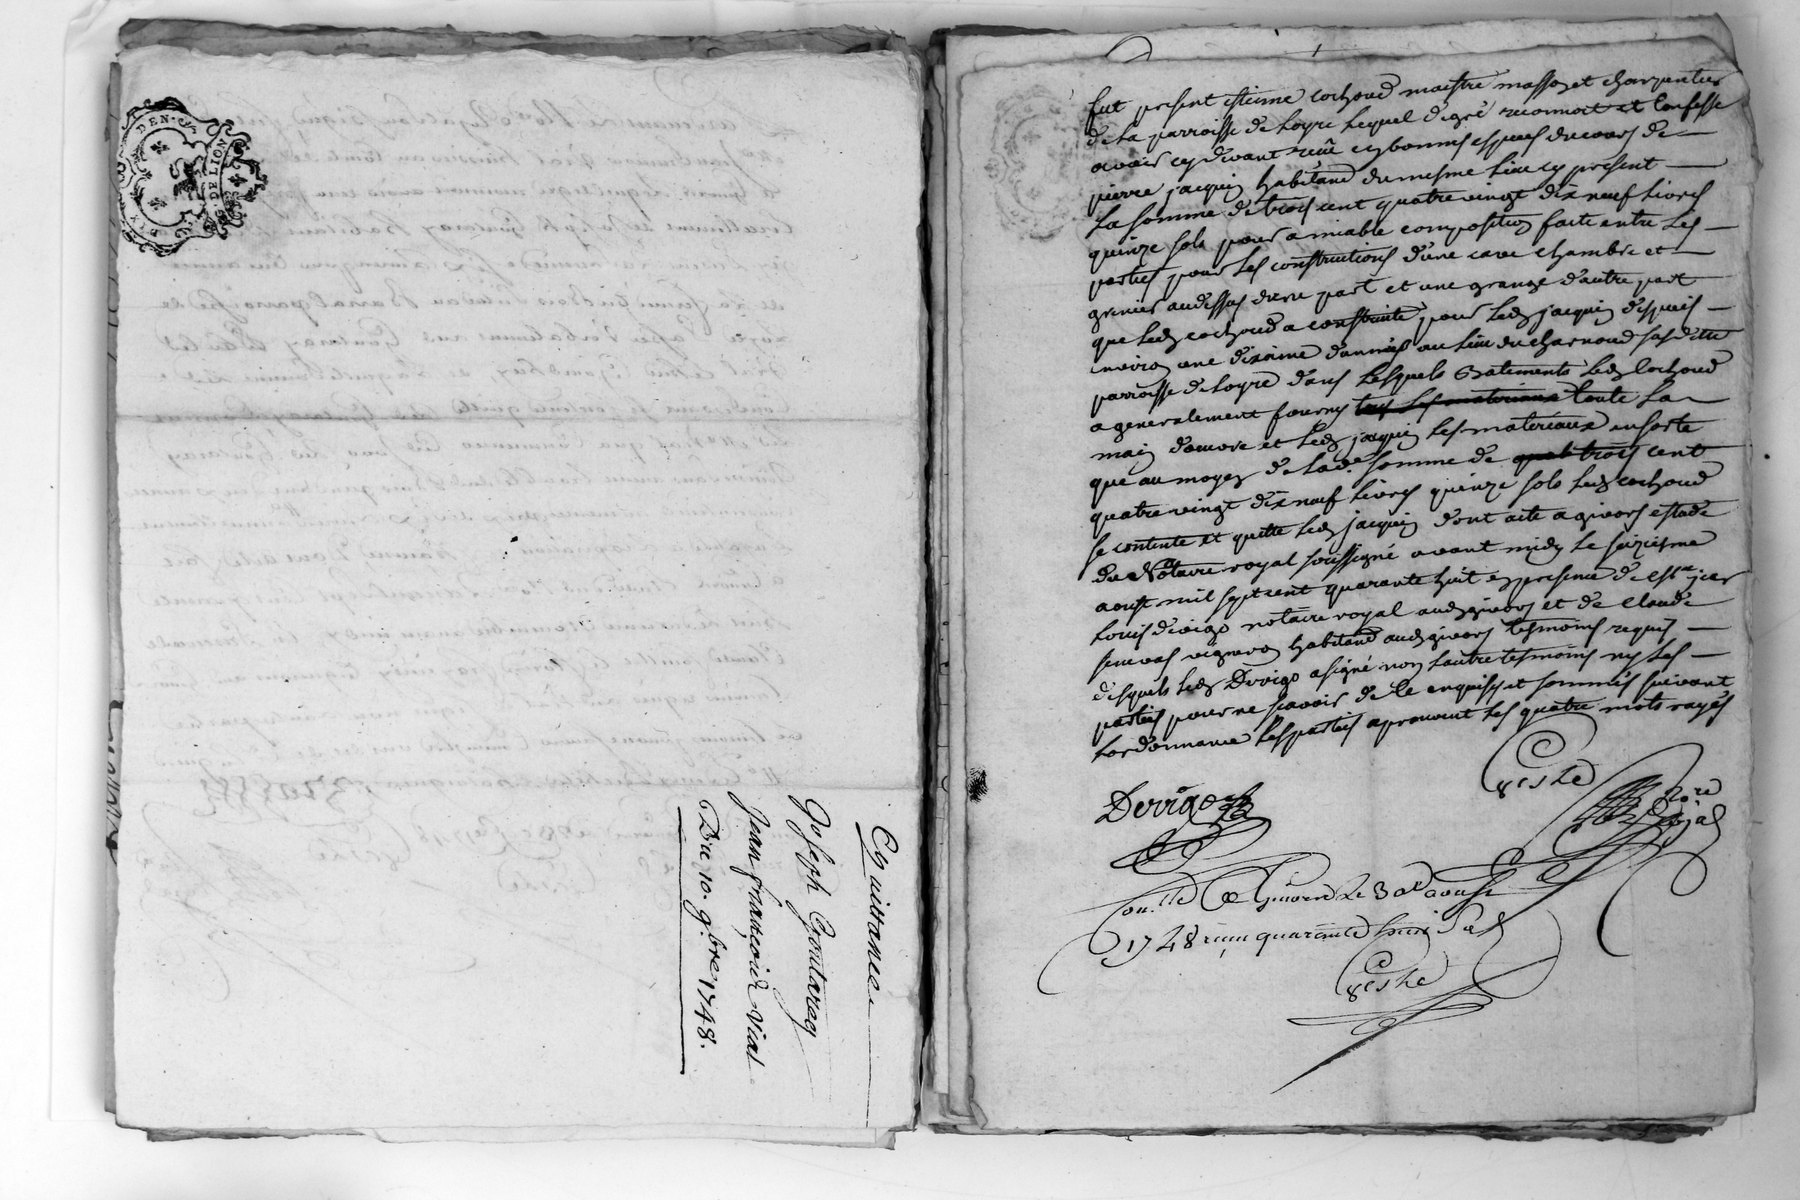 DEN.
DE LION
Quittance
Joseph Gontarey
Jean françois Vial
Du 10. 9.bre 1748.
fut present estienne cochoud maistre masson et charpentier
de la parroisse de Loyre lequel de gré reconnoit et confesse
avoir cy devant reçu en bonnes especes du cours de
pierre jacquin habitand du mesme lieu cy present
La somme de trois cent quatre vingt dix neuf livres
quinze sols pour amiable composition faite entre les
parties pour les constructions d'une cave chambre et
grenier au dessus d'une part et une grange d'autre part
que led cochoud a construite pour led jacquin despuis
environ une dixaine d'années au lieu du charnoud susditte
parroisse de loyre dans lesquels batements led cochoud
a generalement fourny tous les materiaux toute la
main d'œuvre et led jacquin les matereaux en sorte
que au moyen de lad.e somme de trois cent
quatre vingt dix neuf livres quinze sols led cochoud
se contente et quitte led jacquin dont acte a givors estude
du Notaire royal soussigné avant midy le seizieme
aoust mil sept cent quarante huit en presence de
Louis devigo notaire royal aud givors et de claude
vigneron habitand aud givors tesmoins requis
desquels led Devigo a signé non lautre tesmoins ny les
parties pour ne scavoir de ce enquis et sommés suivant
lordonnance les parties aprouvent les quatre mots rayés
Devigo
no.re
royal
Con.lle a Givors le 30 aoust
1748 reçu quarante huit sols